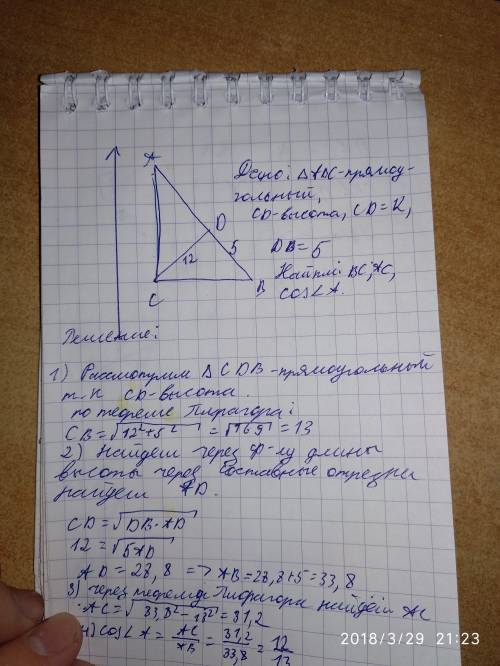 A
D
12
5
C
B
Дано: ΔABC-прямоу-
гольный,
CD-высота, CD=К,
DB=5
Найти: BC, AC,
cos∠A.
Решение:
1) Рассмотрим ΔCDB-прямоугольный
т.к CD-высота.
по теореме Пифагора:
CB=√12²+5² = √169 = 13
2) Найдем через ф-лу длины
высоты через составные отрезки
найдем AD.
CD=√DB·AD
12=√5AD
AD=28,8 => AB=28,8+5=33,8
3) через теорему Пифагора найдём AC
AC=√33,8²-13² = 31,2
4) cos∠A = AC/AB = 31,2/33,8 = 12/13
2018/3/29 21:23